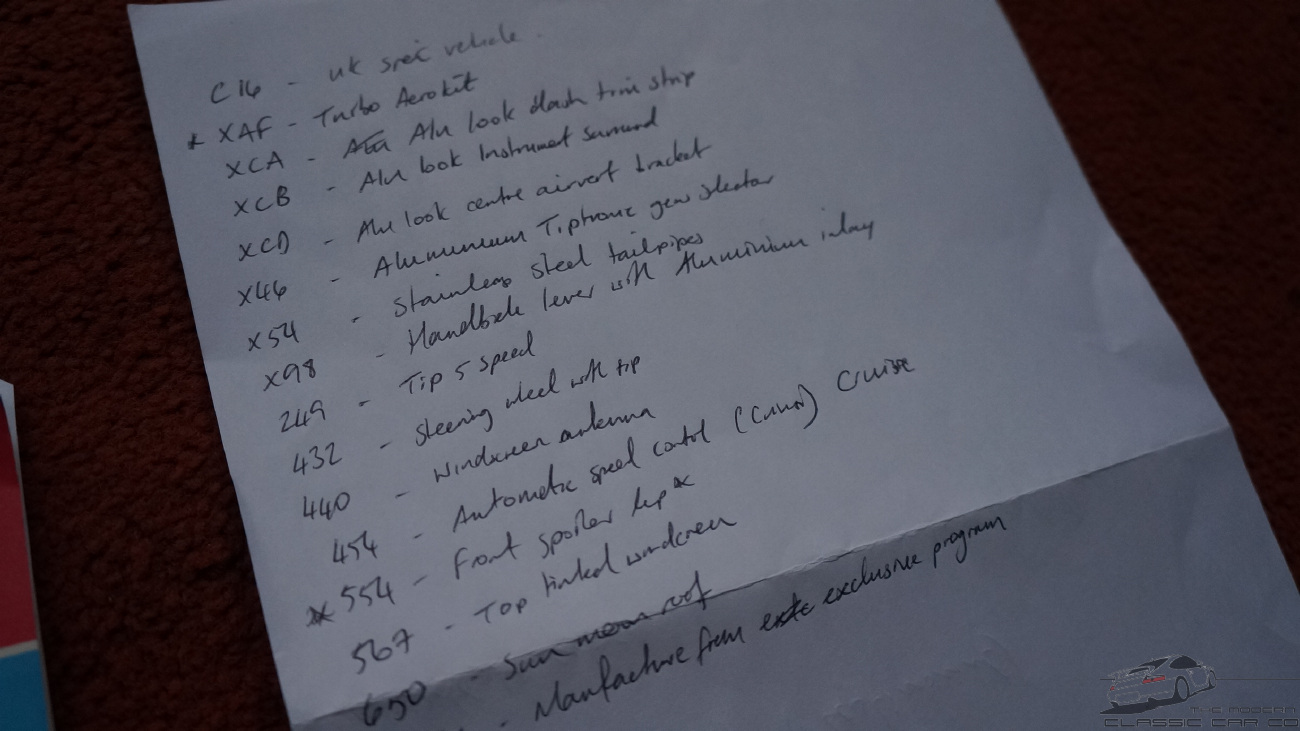 C16 - UK spec vehicle.
* XAF - Turbo Aerokit
XCA - Alu look dash trim strip
XCB - Alu look Instrument surround
XCD - Alu look centre airvent bracket
X46 - Alumunium Tiptronic gear selector
X54 - Stainless steel tailpipes
X98 - Handbrake lever with Aluminium inlay
249 - Tip 5 speed
432 - Steering wheel with tip
440 - Windscreen antenna
454 - Automatic speed control ( ) Cruise
* 554 - Front spoiler lip *
567 - Top tinted windscreen
650 - Sun roof
- Manufacture from exclusive program
THE MODERN
CLASSIC CAR CO